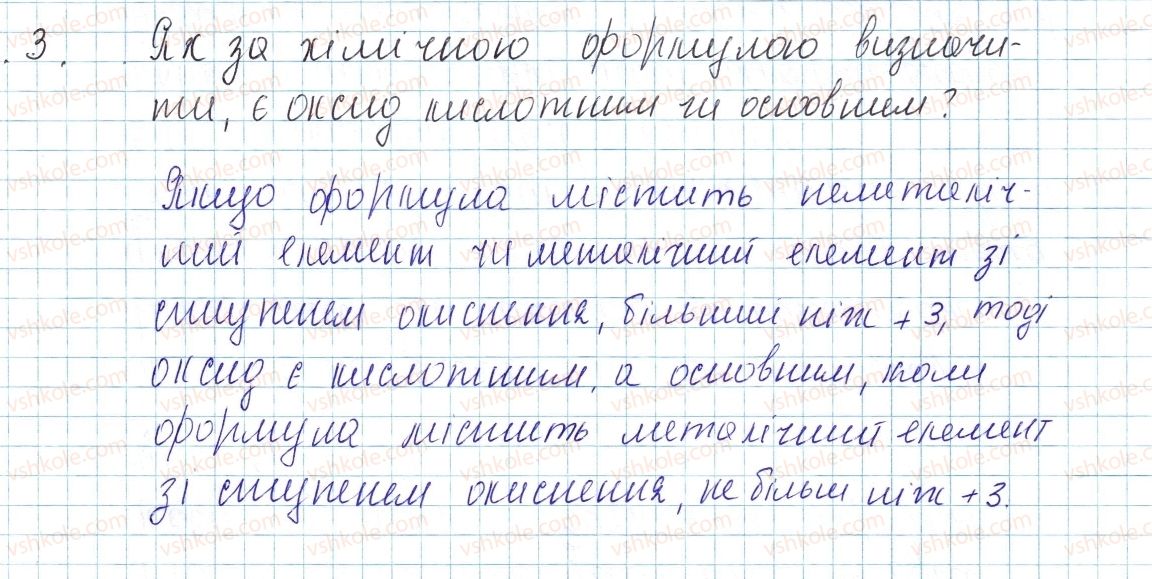 3. Як за хімічною формулою визначи-
ти, є оксид кислотним чи основним?
Якщо формула містить неметаліч-
ний елемент чи металічний елемент зі
ступенем окиснення, більший ніж +3, тоді
оксид є кислотним, а основним, коли
формула містить металічний елемент
зі ступенем окиснення, не більш ніж +3.